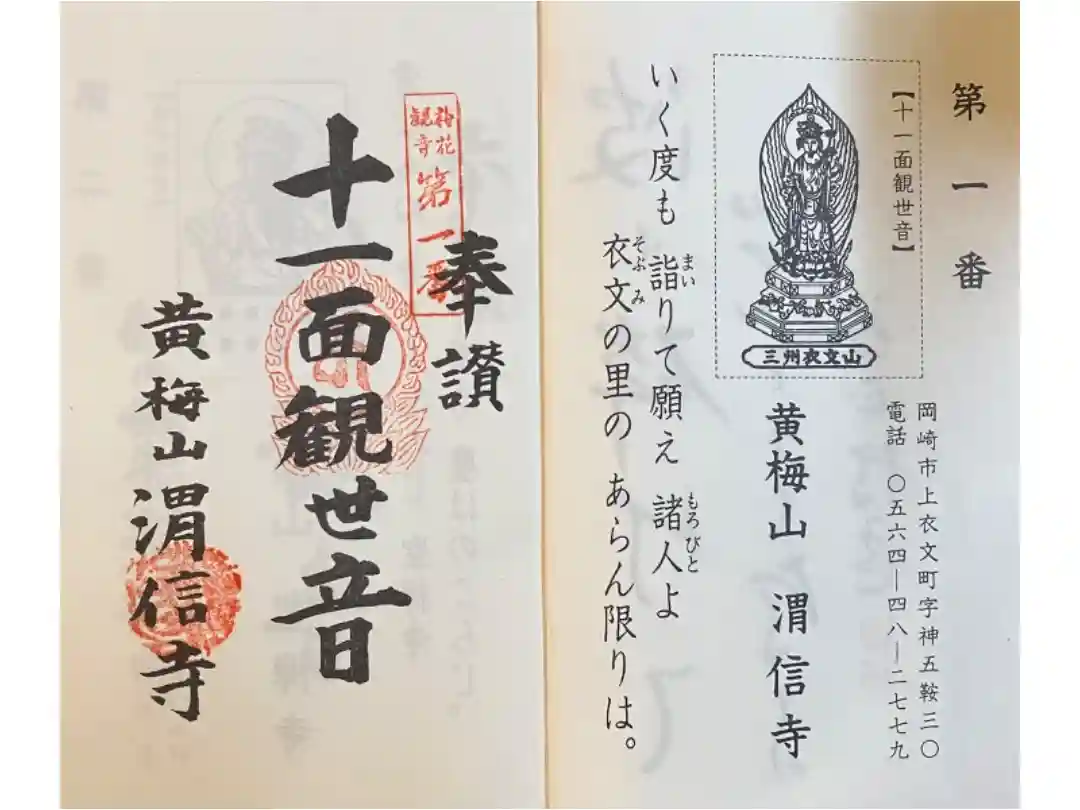 第一番
【十一面観世音】
三州衣文山
岡崎市上衣文町字神五鞍三〇
電話 〇五六四―四八―二七七九
黄梅山 渭信寺
いく度も 詣りて願え 諸人よ
まい
もろびと
衣文の里の あらん限りは。
そぶみ
奉讃
観音
第一番
十一面観世音
黄梅山渭信寺